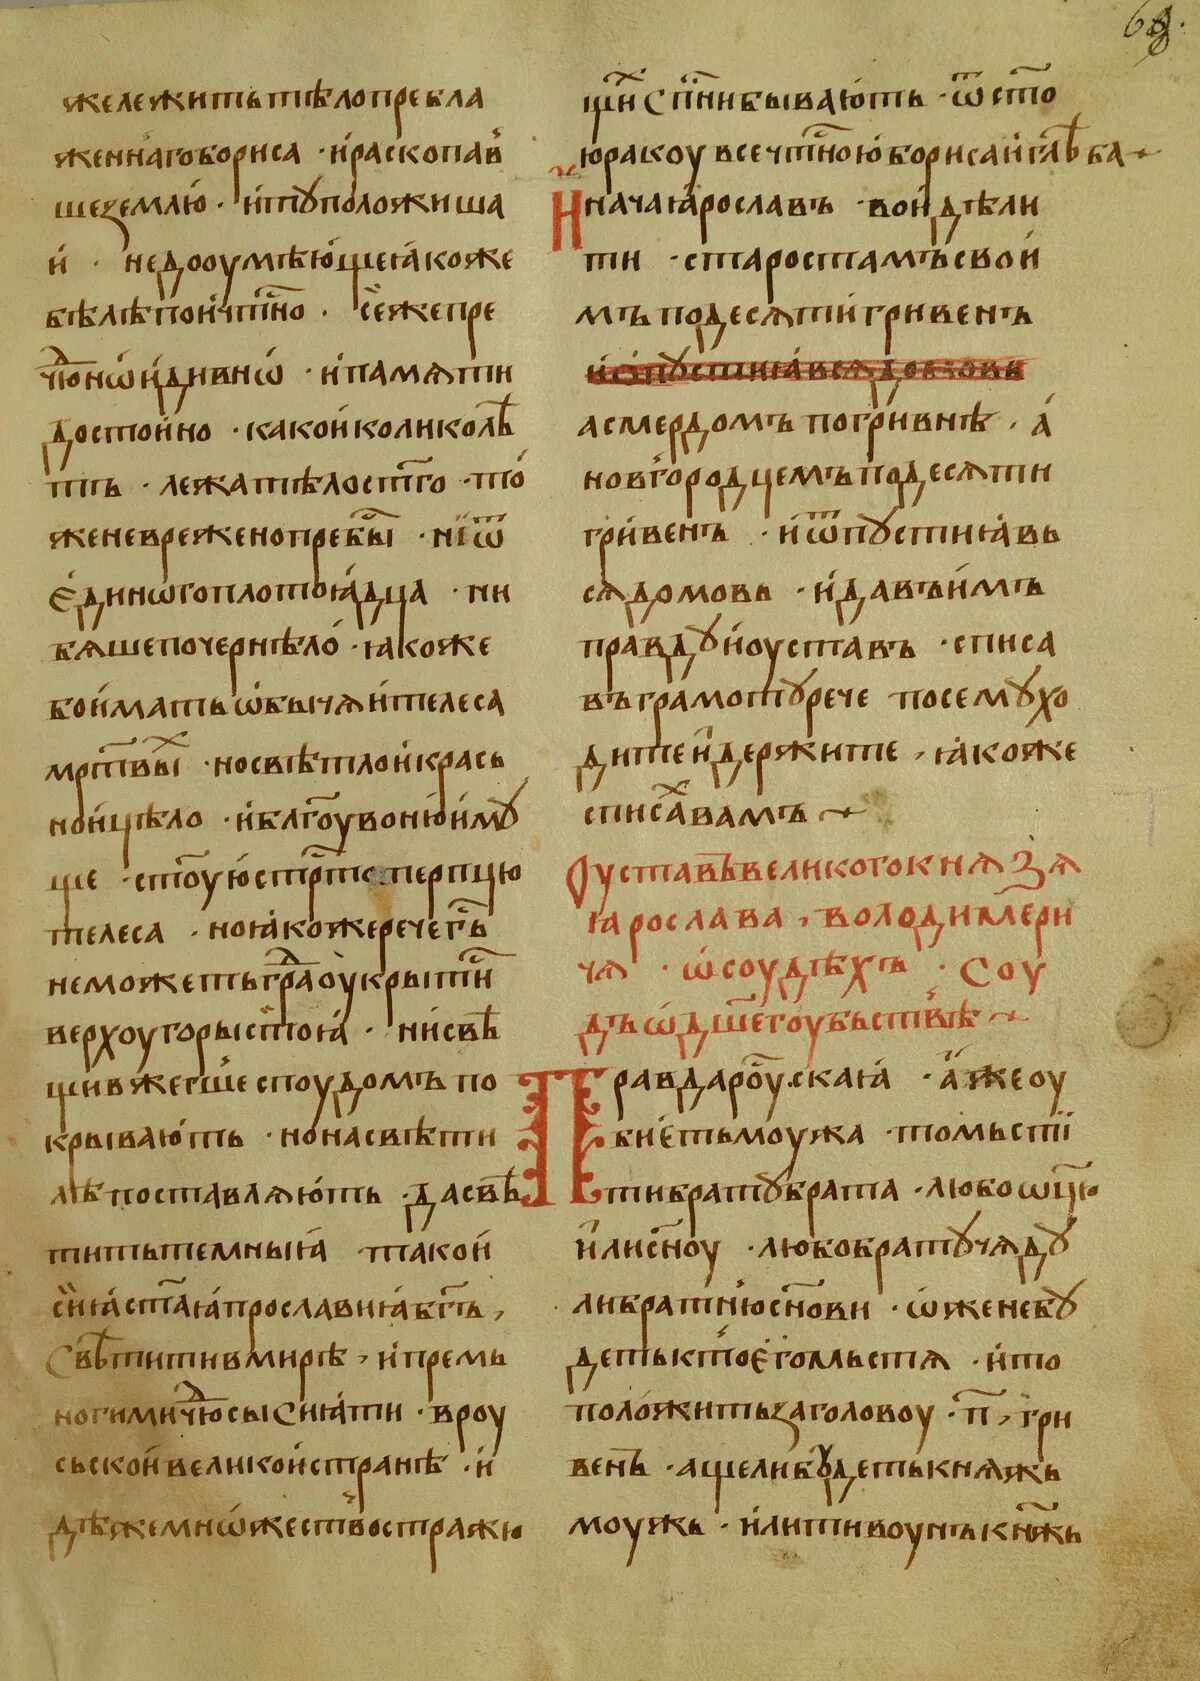 жележитьтѣлопребла
женнагобориса · ираскопав
шеземлю · итꙋположиша
и · недооумѣющеꙗкоже
бѣлѣпоичтⷭ҇но · сежепре
чюⷣноѡидивнѡ · ипамѧти
достойно · какоиколиколѣ
тть · лежатѣлостⷭ҇го · то
женевреженопребыⷭ҇ · ниѿ
единѡгоплотоꙗдца · ни
бѧшепочернѣло · ꙗкоже
боиматьѡбычѧйтелеса
мртⷡ҇выⷯ · носвѣтлоикрась
ноицѣло · иблагⷭ҇оувонюимꙋ
ще · стⷭ҇оуюстрⷭ҇тотерпцю
телеса · ноꙗкожеречегⷭ҇ь
неможетьграⷣоукрытиⷭ҇
верхоугорыстоꙗ · нисвѣ
щивжегшеспоудомъпо
крывають · нонасвѣти
лѣпоставлѧють · дасвѣ
титьтемныꙗ такои
сиꙗстⷭ҇аꙗпрославиꙗбг҃ъ,
свѣтитивмирѣ, ипремь
ногимичюⷣсысиꙗти · вроу
сьскойвеликойстранѣ · и
дѣжемнѡжествостражю
щиⷯсп҃нибывають · ѿсто
юракоувсечтⷭ҇ноюборисаиглѣба
Иначаꙗрославъ · воидѣли
ти · старостамъсвои
мъподесѧтигривенъ
иѿпꙋстиꙗвсѧдомовь
асмердомъпогривнѣ · а
новгородцемъподесѧти
гривенъ · иѿпꙋстиꙗвь
сѧдомовь · идавъимъ
правдꙋиоуставъ · списа
въграмотꙋрече посемꙋхо
дитеидержите, ꙗкоже
списаⷯвамъ
Оуставъвеликогокнѧзѧ
ꙗрослава, володимери
чѧ · ѡсоудѣхъ · Соу
дъѡдш҃егоубьствѣ
Правдароуⷭ҇скаꙗ · ажеоу
биетьмоужа · томьсти
тибратꙋбрата · любоѡцю
илисн҃оу · любобратꙋчѧдꙋ
либратнюсн҃ови · ѡженебꙋ
детьктоегомьстѧ · ито
положитьзаголовоу · п҃, гри
венъ · ащелибꙋдетькнѧжь
моужь · илитивоунъкнѧжь